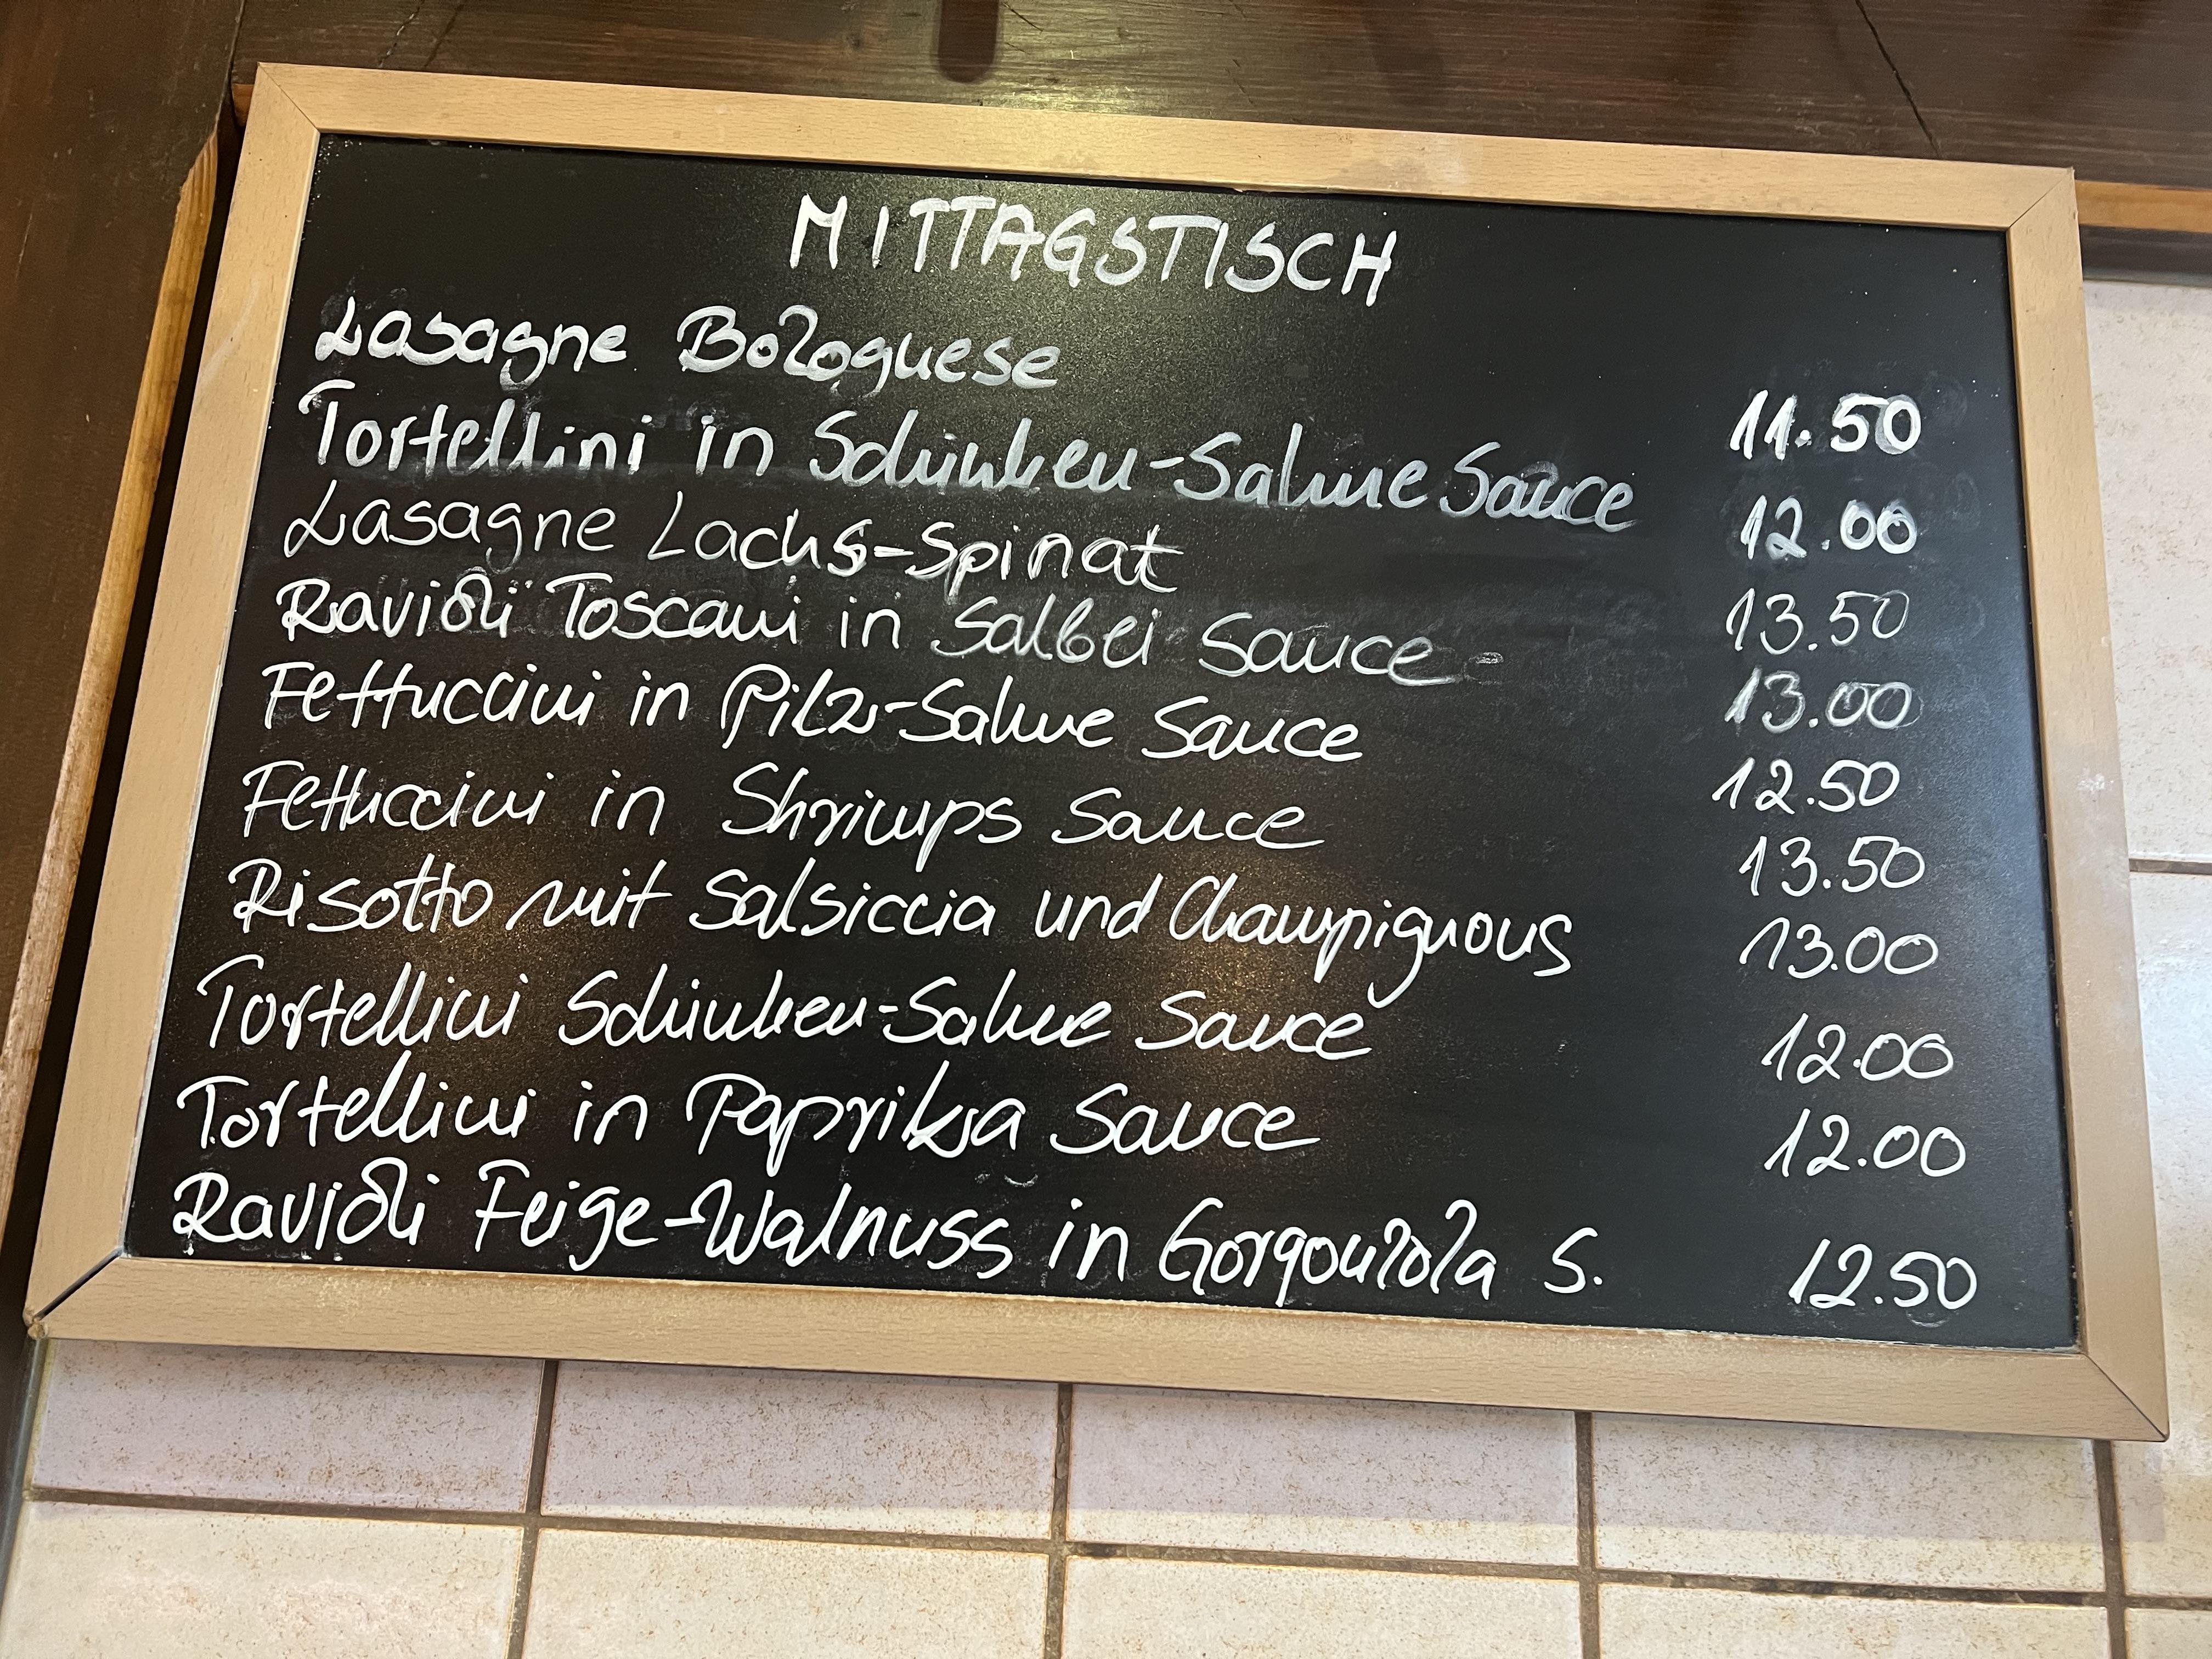 MITTAGSTISCH
Lasagne Bolognese 11.50
Tortellini in Schinken-Sahne Sauce 12.00
Lasagne Lachs-Spinat 13.50
Ravioli Toscani in Salbei Sauce 13.00
Fettuccini in Pilz-Sahne Sauce 12.50
Fettuccini in Shrimps Sauce 13.50
Risotto mit Salsiccia und Champignons 13.00
Tortellini Schinken-Sahne Sauce 12.00
Tortellini in Paprika Sauce 12.00
Ravioli Feige-Walnuss in Gorgonzola S. 12.50